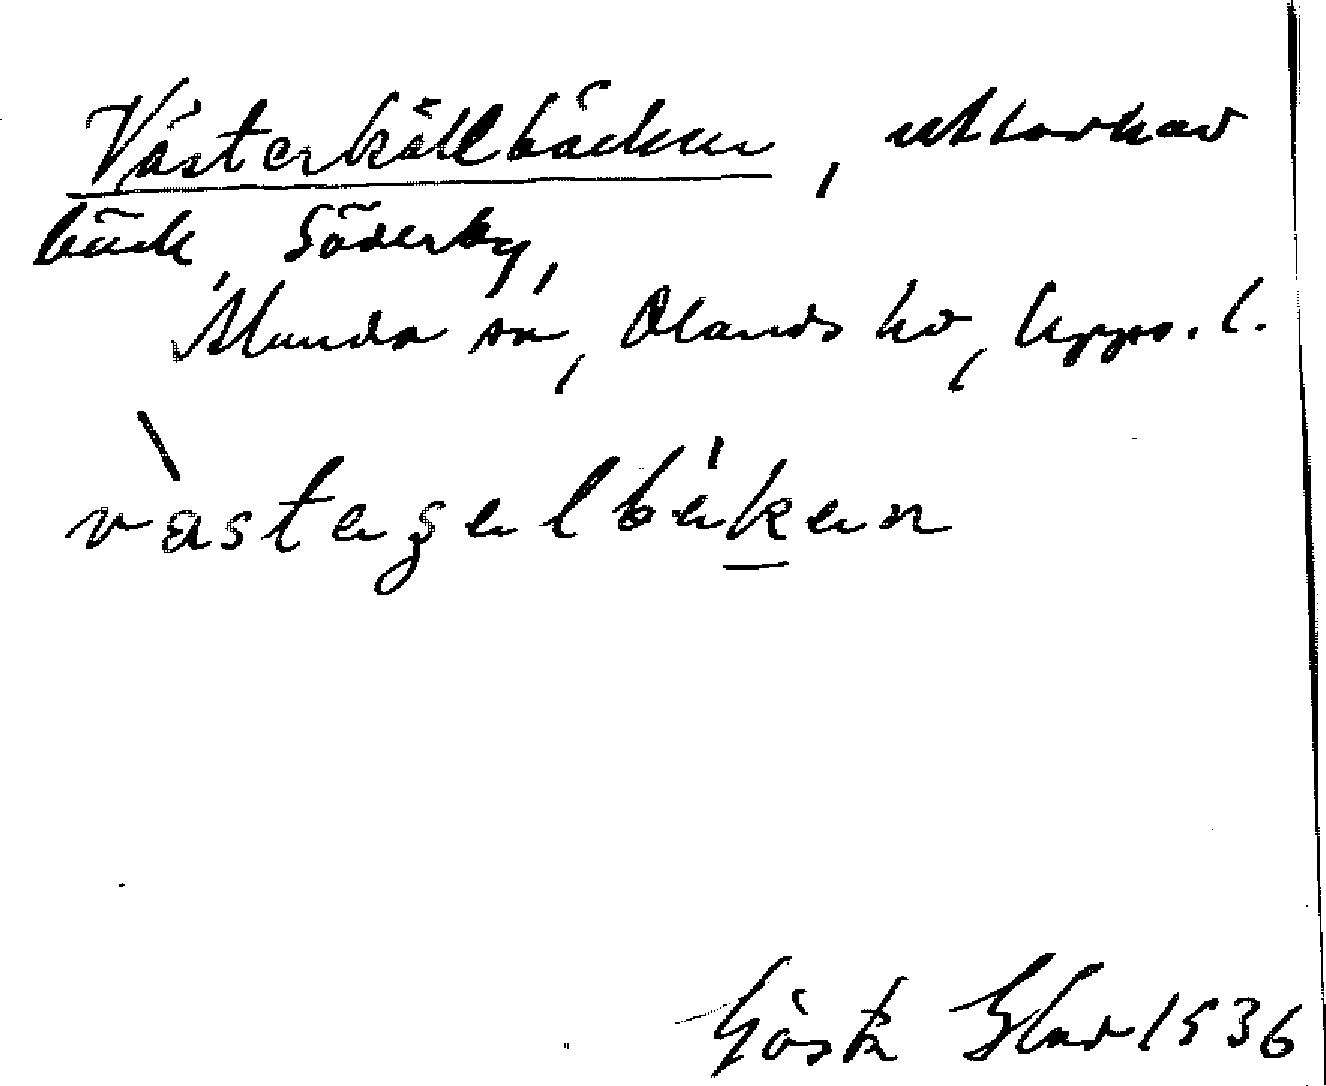 Västerkällbäcken, uttorkad
bäck, Söderby,
Alunda sn, Olands hd, Upps. l.
vàsteʒelbékan
Gösta 1936